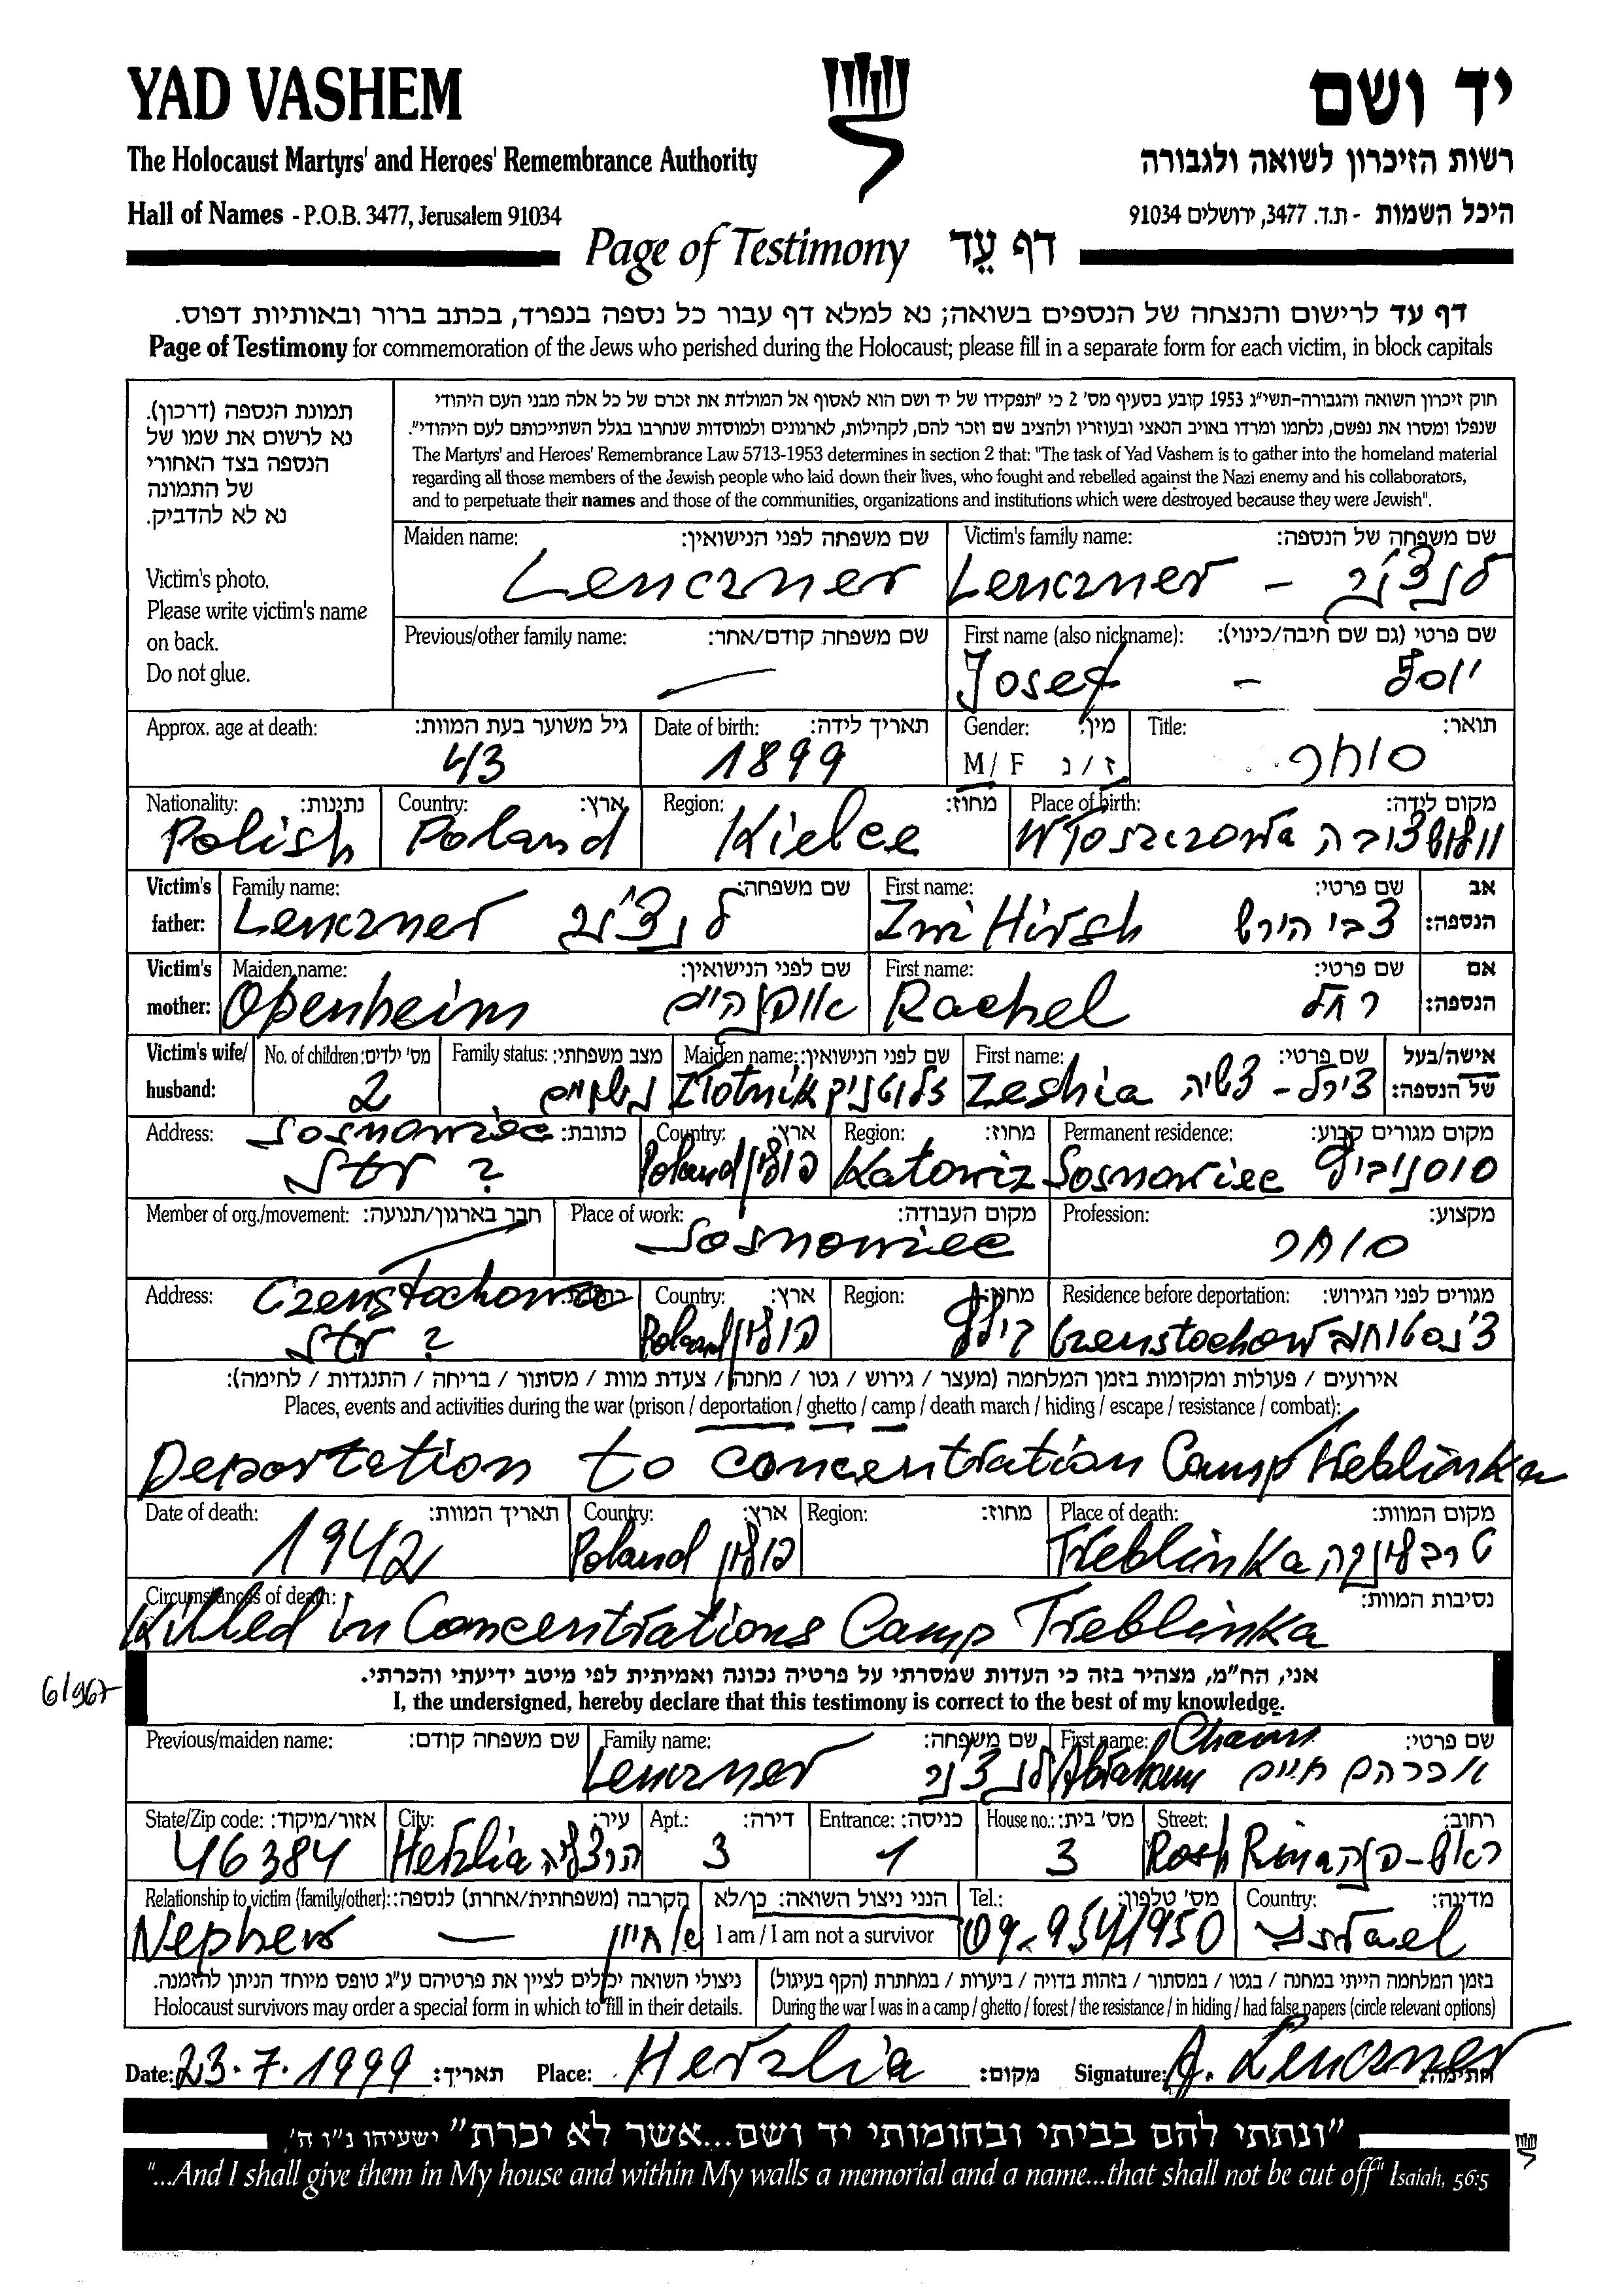 YAD VASHEM
יד ושם
The Holocaust Martyrs' and Heroes' Remembrance Authority
רשות הזיכרון לשואה ולגבורה
Hall of Names - P.O.B. 3477, Jerusalem 91034
היכל השמות - ת.ד. 3477, ירושלים 91034
Page of Testimony דף עֵד
דף עד לרישום והנצחה של הנספים בשואה; נא למלא דף עבור כל נספה בנפרד, בכתב ברור ובאותיות דפוס.
Page of Testimony for commemoration of the Jews who perished during the Holocaust; please fill in a separate form for each victim, in block capitals
תמונת הנספה (דרכון).
נא לרשום את שמו של
הנספה בצד האחורי
של התמונה
נא לא להדביק.
Victim's photo.
Please write victim's name
on back.
Do not glue.
חוק זיכרון השואה והגבורה-תשי"ג 1953 קובע בסעיף מס' 2 כי "תפקידו של יד ושם הוא לאסוף אל המולדת את זכרם של כל אלה מבני העם היהודי
שנפלו ומסרו את נפשם, נלחמו ומרדו באויב הנאצי ובעוזריו ולהציב שם וזכר להם, לקהילות, לארגונים ולמוסדות שנחרבו בגלל השתייכותם לעם היהודי".
The Martyrs' and Heroes' Remembrance Law 5713-1953 determines in section 2 that: "The task of Yad Vashem is to gather into the homeland material
regarding all those members of the Jewish people who laid down their lives, who fought and rebelled against the Nazi enemy and his collaborators,
and to perpetuate their names and those of the communities, organizations and institutions which were destroyed because they were Jewish".
Maiden name: שם משפחה לפני הנישואין: Victim's family name: שם משפחה של הנספה:
Lenczner Lenczner - לנצ'נר
Previous/other family name: שם משפחה קודם/אחר: First name (also nickname): שם פרטי (גם שם חיבה/כינוי):
— Josef - יוסף
Approx. age at death: גיל משוער בעת המוות: Date of birth: תאריך לידה: Gender: מין: Title: תואר:
43 1899 M/ F ז / נ סוחר
Nationality: נתינות: Country: ארץ: Region: מחוז: Place of birth: מקום לידה:
Polish Poland Kielce Włoszczowa וולושצ'ובה
Victim's father: Family name: שם משפחה: First name: שם פרטי: אב הנספה:
Lenczner לנצ'נר Zwi Hirsh צבי הירש
Victim's mother: Maiden name: שם לפני הנישואין: First name: שם פרטי: אם הנספה:
Openheim אופנהיים Rachel רחל
Victim's wife/ husband: No. of children: מס' ילדים: Family status: מצב משפחתי: Maiden name: שם לפני הנישואין: First name: שם פרטי: אישה/בעל של הנספה:
2 Złotnik זלוטניק Zeshia צירל - צשיה
Address: כתובת: Country: ארץ: Region: מחוז: Permanent residence: מקום מגורים קבוע:
Sosnowiec Str ? Poland פולין Katowiz Sosnowiec סוסנוביץ
Member of org./movement: חבר בארגון/תנועה: Place of work: מקום העבודה: Profession: מקצוע:
Sosnowiec סוחר
Address: כתובת: Country: ארץ: Region: מחוז: Residence before deportation: מגורים לפני הגירוש:
Czenstochowa Str ? Poland פולין קילץ Czenstochow צ'נסטוחוב
אירועים / פעולות ומקומות בזמן המלחמה (מעצר / גירוש / גטו / מחנה / צעדת מוות / מסתור / בריחה / התנגדות / לחימה):
Places, events and activities during the war (prison / deportation / ghetto / camp / death march / hiding / escape / resistance / combat):
Deportation to concentration Camp Treblinka
Date of death: תאריך המוות: Country: ארץ: Region: מחוז: Place of death: מקום המוות:
1942 Poland פולין Treblinka טרבלינקה
Circumstances of death: נסיבות המוות:
Killed in Concentrations Camp Treblinka
אני, הח"מ, מצהיר בזה כי העדות שמסרתי על פרטיה נכונה ואמיתית לפי מיטב ידיעתי והכרתי.
6/967
I, the undersigned, hereby declare that this testimony is correct to the best of my knowledge.
Previous/maiden name: שם משפחה קודם: Family name: שם משפחה: First name: שם פרטי:
Lenczner לנצ'נר Abraham Chaim אברהם חיים
State/Zip code: אזור/מיקוד: City: עיר: Apt.: דירה: Entrance: כניסה: House no.: מס' בית: Street: רחוב:
46384 Herzlia הרצליה 3 1 3 Rosh Pina ראש-פינה
Relationship to victim (family/other): הקרבה (משפחתית/אחרת) לנספה: הנני ניצול השואה: כן/לא Tel.: מס' טלפון: Country: מדינה:
Nephew — אחיין I am / I am not a survivor 09-9541950 Israel
ניצולי השואה יכולים לציין את פרטיהם ע"ג טופס מיוחד הניתן להזמנה. בזמן המלחמה הייתי במחנה / בגטו / במסתור / בזהות בדויה / ביערות / במחתרת (הקף בעיגול)
Holocaust survivors may order a special form in which to fill in their details. During the war I was in a camp / ghetto / forest / the resistance / in hiding / had false papers (circle relevant options)
Date: 23.7.1999 תאריך: Place: Herzlia מקום: Signature: A. Lenczner חתימה:
"ונתתי להם בביתי ובחומותי יד ושם...אשר לא יכרת" ישעיהו נ"ו ה'
"...And I shall give them in My house and within My walls a memorial and a name...that shall not be cut off" Isaiah, 56:5